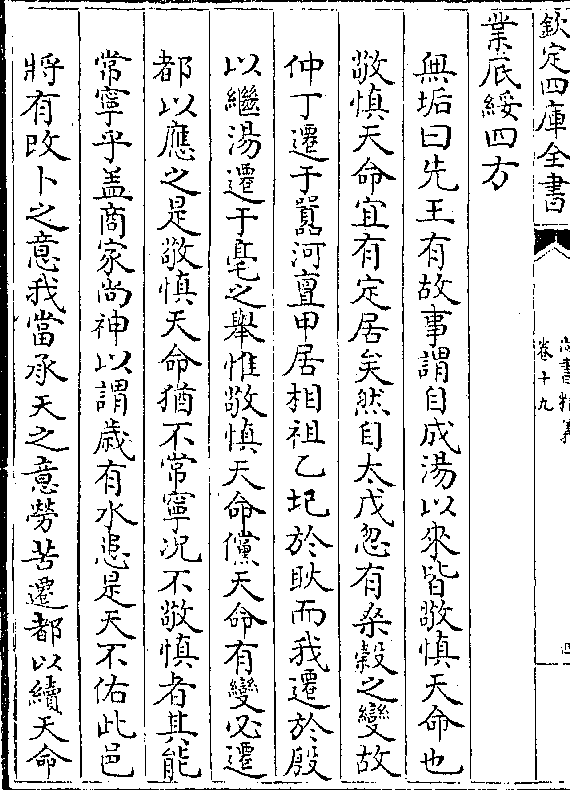 欽定四庫全書
尚書精義
卷十九
四
業厎綏四方
無垢曰先王有故事謂自成湯以來皆敬慎天命也
敬慎天命宜有定居矣然自太戊忽有桑榖之變故
仲丁遷于囂河亶甲居相祖乙圮於耿而我遷於殷
以繼湯遷于亳之舉惟敬慎天命儻天命有變必遷
都以應之是敬慎天命猶不常寧况不敬慎者其能
常寧乎盖商家尚神以謂歲有水患是天不佑此邑
將有改卜之意我當承天之意勞苦遷都以續天命